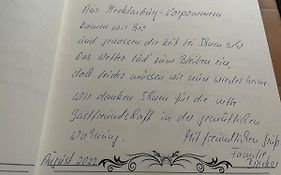 Aus Mecklenburg-Vorpommern
kamen wir her
und genossen die Zeit bei Ihnen sehr
Das Wetter lud zum Bleiben ein,
doch leider müssen wir nun wieder heim.
Wir danken Ihnen für die nette
Gastfreundschaft in der gemütlichen
Wohnung.
Mit freundlichen Grüßen
Familie
August 2022